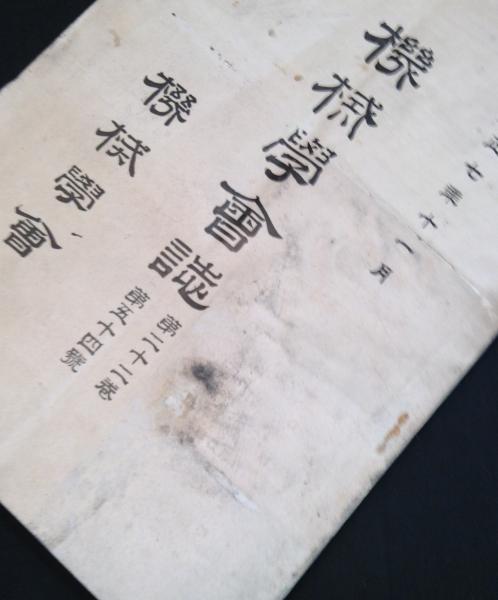 七年十一月
機械學會誌
第二十二卷
第五十四號
機械學會